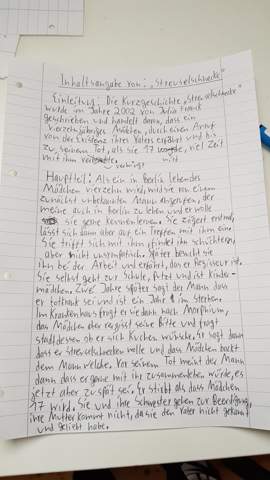 Inhaltsangabe von: „Streuselschnecke"
Einleitung: Die Kurzgeschichte „Streuselschnecke"
wurde im Jahre 2002 von Julia Franck
geschrieben und handelt davon, dass ein
vierzehnjähriges Mädchen, durch einen Anruf
von der Existenz ihres Vaters erfährt und bis
zu seinem Tot, als sie 17 viel Zeit
mit ihm verbringt
Hauptteil: Als ein in Berlin lebendes
Mädchen vierzehn wird, wird sie von einem
zunächst unbekannten Mann angerufen, der
meine auch in Berlin zu leben und er wolle
sie gerne kennenlernen. Sie zögert erstmal,
lässt sich dann aber auf ein Treffen mit ihm ein.
Sie trifft sich mit ihm, findet ihn schüchtern
aber nicht unsympathisch. Später besucht sie
ihn bei der Arbeit und erfährt, dass er Regisseur ist.
Sie selbst geht zur Schule, Putzt und ist Kinder-
mädchen. Zwei Jahre später sagt der Mann dass
er totkrank sei und ist ein Jahr im sterben.
Im Krankenhaus fragt er sie dann nach Morphium,
das Mädchen aber seine Bitte und fragt
stattdessen ob er sich Kuchen wünsche. Er sagt dann
dass er Streuselschnecken wolle und das Mädchen backt
dem Mann welche. Vor seinem Tot meint der Mann
dann dass er gerne mit ihr zusammenleben würde, es
jetzt aber zu spät sei. Er stirbt als dass Mädchen
17 wird. Sie und ihre Schwester gehen zur Beerdigung,
ihre Mutter kommt nicht, da sie den Vater nicht gekannt
und geliebt habe.